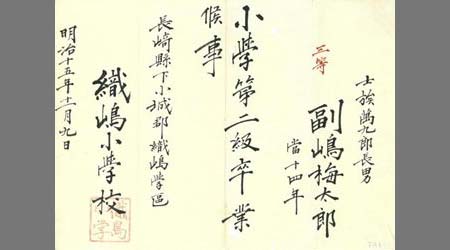 三等
士族𠀋九郎長男
副嶋梅太郎
當十四年
小學第二級卒業
候事
長崎縣下小城郡織嶋學區
織嶋小學校
明治十五年十一月九日